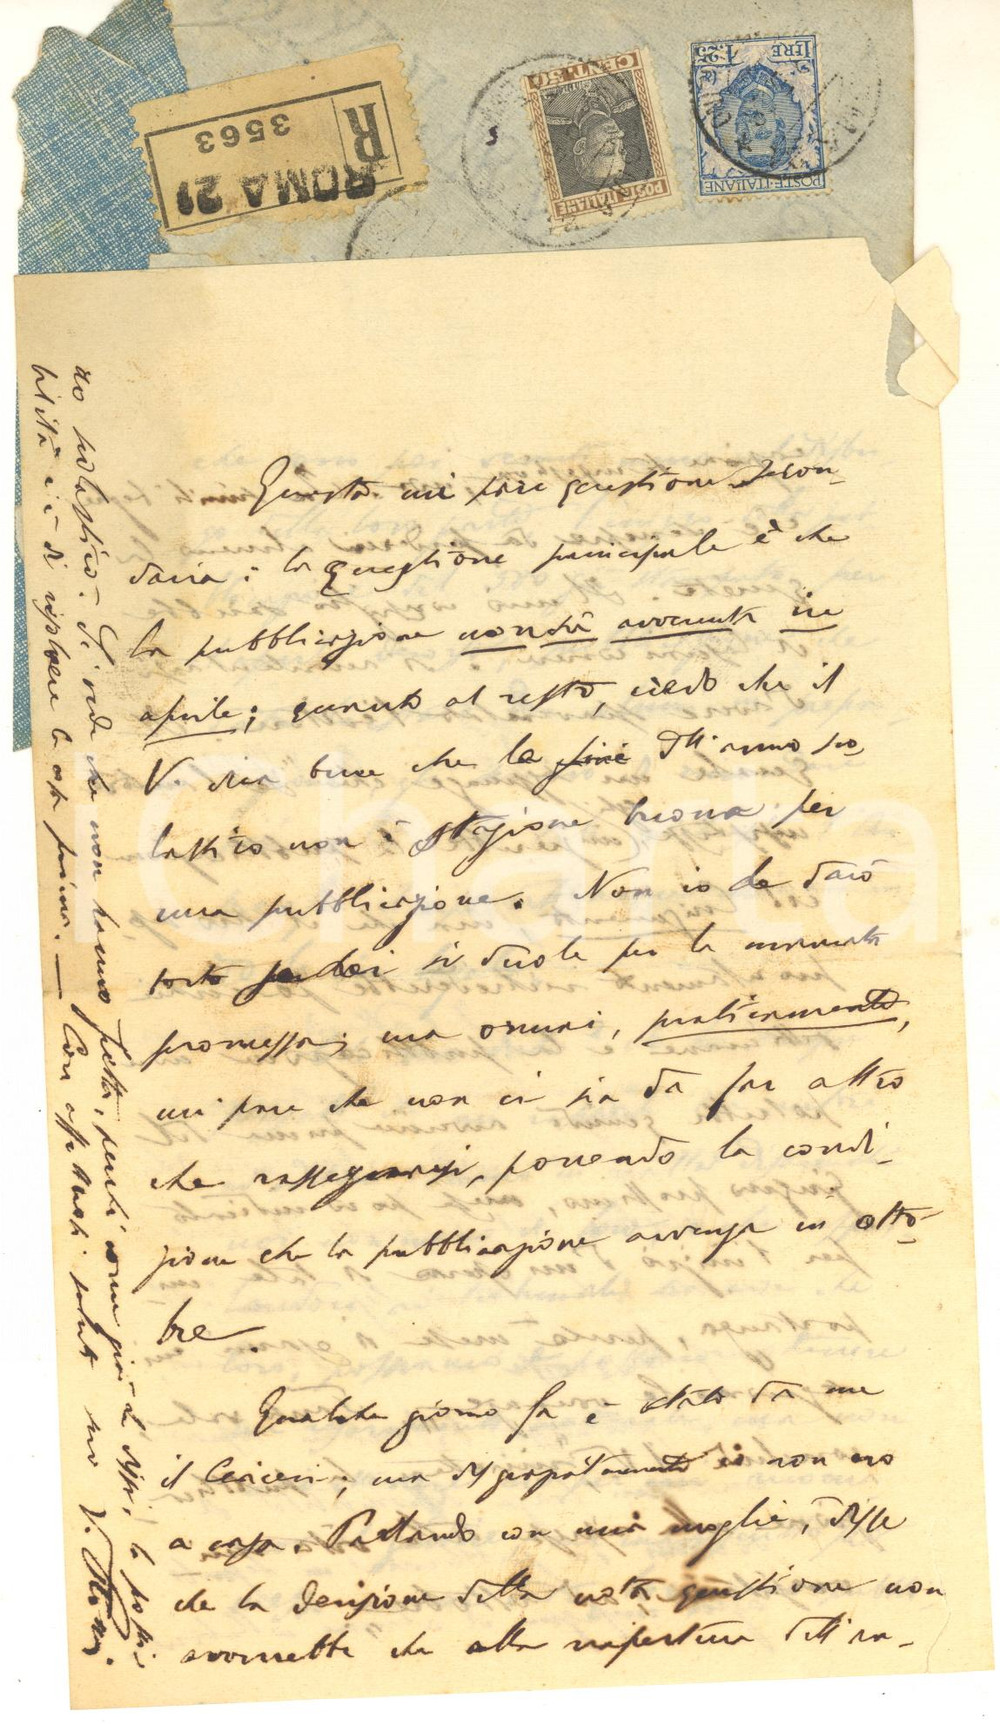 ROMA 21
R
3563
CENT. 50
POSTE ITALIANE
LIRE 1.25
POSTE · ITALIANE
Questa mi pare questione secon-
daria: la questione principale è che
la pubblicazione non sia avvenuta in
aprile; quanto al resto, credo che il
V. dica bene che la fine dell'anno sco-
lastico non è stagione buona per
una pubblicazione. Non io le darò
torto se Lei si duole per la mancata
promessa; ma ormai, praticamente,
mi pare che non ci sia da far altro
che rassegnarsi, ponendo la condi-
zione che la pubblicazione avvenga in otto-
bre.
Qualche giorno fa è stato da me
il ; ma disgraziatamente io non ero
a casa. Parlando con mia moglie, disse
che la decisione della nota questione non
avverrebbe che alla riapertura dell'an-
no scolastico. Si vede che non hanno fretta, perché come già Le dissi, la possi-
bilità c'è di risolvere la cosa prima. — Con affettuosi saluti suo V.